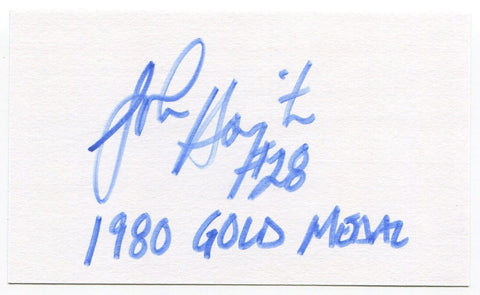 John
#28
1980 GOLD MEDAL